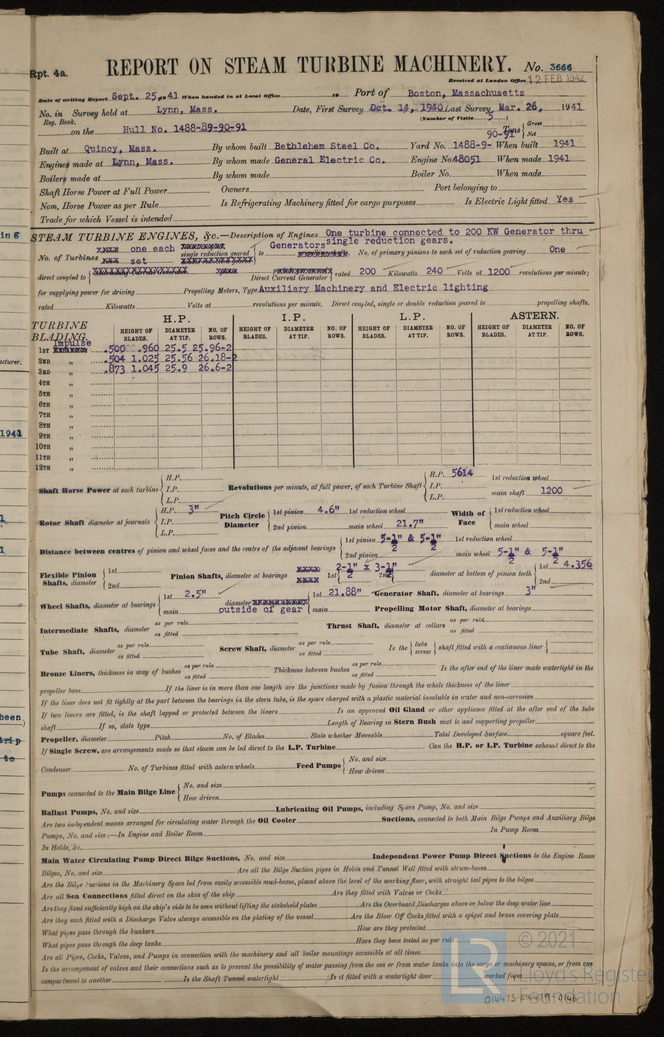 Rpt. 4a.
REPORT ON STEAM TURBINE MACHINERY. No. 3666
Received at London Office 12 FEB 1942
Date of writing Report Sept. 25, 1941 When handed in at Local Office 19 Port of Boston, Massachusetts
No. in Reg. Book. Survey held at Lynn, Mass. Date, First Survey Oct. 14, 1940 Last Survey Mar. 26, 1941
(Number of Visits 5)
on the Hull No. 1488-89-90-91 Tons { Gross Net
90-91
Built at Quincy, Mass. By whom built Bethlehem Steel Co. Yard No. 1488-9- When built 1941
Engines made at Lynn, Mass. By whom made General Electric Co. Engine No. 48051 When made 1941
Boilers made at By whom made Boiler No. When made
Shaft Horse Power at Full Power Owners Port belonging to
Nom. Horse Power as per Rule Is Refrigerating Machinery fitted for cargo purposes Is Electric Light fitted Yes
Trade for which Vessel is intended
STEAM TURBINE ENGINES, &c.—Description of Engines One turbine connected to 200 KW Generator thru
single reduction gears.
No. of Turbines one each set single reduction geared to Generators No. of primary pinions to each set of reduction gearing One
direct coupled to Direct Current Generator rated 200 Kilowatts 240 Volts at 1200 revolutions per minute;
for supplying power for driving Propelling Motors, Type Auxiliary Machinery and Electric lighting
rated Kilowatts Volts at revolutions per minute. Direct coupled, single or double reduction geared to propelling shafts.
TURBINE BLADING. H.P. I.P. L.P. ASTERN.
HEIGHT OF BLADES. DIAMETER AT TIP. NO. OF ROWS. HEIGHT OF BLADES. DIAMETER AT TIP. NO. OF ROWS. HEIGHT OF BLADES. DIAMETER AT TIP. NO. OF ROWS. HEIGHT OF BLADES. DIAMETER AT TIP. NO. OF ROWS.
Impulse
1ST .500 .960 25.5 25.96-2
2ND „ .504 1.025 25.56 26.18-2
3RD „ .873 1.045 25.9 26.6-2
4TH „
5TH „
6TH „
7TH „
8TH „
9TH „
10TH „
11TH „
12TH „
Shaft Horse Power at each turbine { H.P. I.P. L.P. Revolutions per minute, at full power, of each Turbine Shaft { H.P. 5614 I.P. L.P. 1st reduction wheel main shaft 1200
Rotor Shaft diameter at journals { H.P. 3" I.P. L.P. Pitch Circle Diameter { 1st pinion 4.6" 1st reduction wheel 2nd pinion main wheel 21.7" Width of Face { 1st reduction wheel main wheel
Distance between centres of pinion and wheel faces and the centre of the adjacent bearings { 1st pinion 5-1/2" & 5-1/2" 1st reduction wheel 2nd pinion main wheel 5-1/2" & 5-1/2"
Flexible Pinion Shafts, diameter { 1st 2nd Pinion Shafts, diameter at bearings 1st 2-1/2" x 3-1/2" 2nd diameter at bottom of pinion teeth { 1st 4.356 2nd
Wheel Shafts, diameter at bearings { 1st 2.5" main diameter outside of gear { 1st 21.88" main Generator Shaft, diameter at bearings 3"
Propelling Motor Shaft, diameter at bearings
Intermediate Shafts, diameter as per rule as fitted Thrust Shaft, diameter at collars as per rule as fitted
Tube Shaft, diameter as per rule as fitted Screw Shaft, diameter as per rule as fitted Is the { tube screw } shaft fitted with a continuous liner {
Bronze Liners, thickness in way of bushes as per rule as fitted Thickness between bushes as per rule as fitted Is the after end of the liner made watertight in the
propeller boss If the liner is in more than one length are the junctions made by fusion through the whole thickness of the liner
If the liner does not fit tightly at the part between the bearings in the stern tube, is the space charged with a plastic material insoluble in water and non-corrosive
If two liners are fitted, is the shaft lapped or protected between the liners Is an approved Oil Gland or other appliance fitted at the after end of the tube
shaft If so, state type Length of Bearing in Stern Bush next to and supporting propeller
Propeller, diameter Pitch No. of Blades State whether Moveable Total Developed Surface square feet.
If Single Screw, are arrangements made so that steam can be led direct to the L.P. Turbine Can the H.P. or I.P. Turbine exhaust direct to the
Condenser No. of Turbines fitted with astern wheels Feed Pumps { No. and size How driven
Pumps connected to the Main Bilge Line { No. and size How driven
Ballast Pumps, No. and size Lubricating Oil Pumps, including Spare Pump, No. and size
Are two independent means arranged for circulating water through the Oil Cooler Suctions, connected to both Main Bilge Pumps and Auxiliary Bilge
Pumps, No. and size:—In Engine and Boiler Room In Pump Room
In Holds, &c.
Main Water Circulating Pump Direct Bilge Suctions, No. and size Independent Power Pump Direct Suctions to the Engine Room
Bilges, No. and size Are all the Bilge Suction pipes in Holds and Tunnel Well fitted with strum-boxes
Are the Bilge Suctions in the Machinery Space led from easily accessible mud-boxes, placed above the level of the working floor, with straight tail pipes to the bilges
Are all Sea Connections fitted direct on the skin of the ship Are they fitted with Valves or Cocks
Are they fixed sufficiently high on the ship's side to be seen without lifting the stokehold plates Are the Overboard Discharges above or below the deep water line
Are they each fitted with a Discharge Valve always accessible on the plating of the vessel Are the Blow Off Cocks fitted with a spigot and brass covering plate
What pipes pass through the bunkers How are they protected
What pipes pass through the deep tanks Have they been tested as per rule
Are all Pipes, Cocks, Valves, and Pumps in connection with the machinery and all boiler mountings accessible at all times
Is the arrangement of valves and their connections such as to prevent possibility of water passing from the sea or from water tanks into the cargo or machinery spaces, or from one
compartment to another Is the Shaft Tunnel watertight Is it fitted with a watertight door worked from
LR © 2021
Lloyd's Register
Foundation